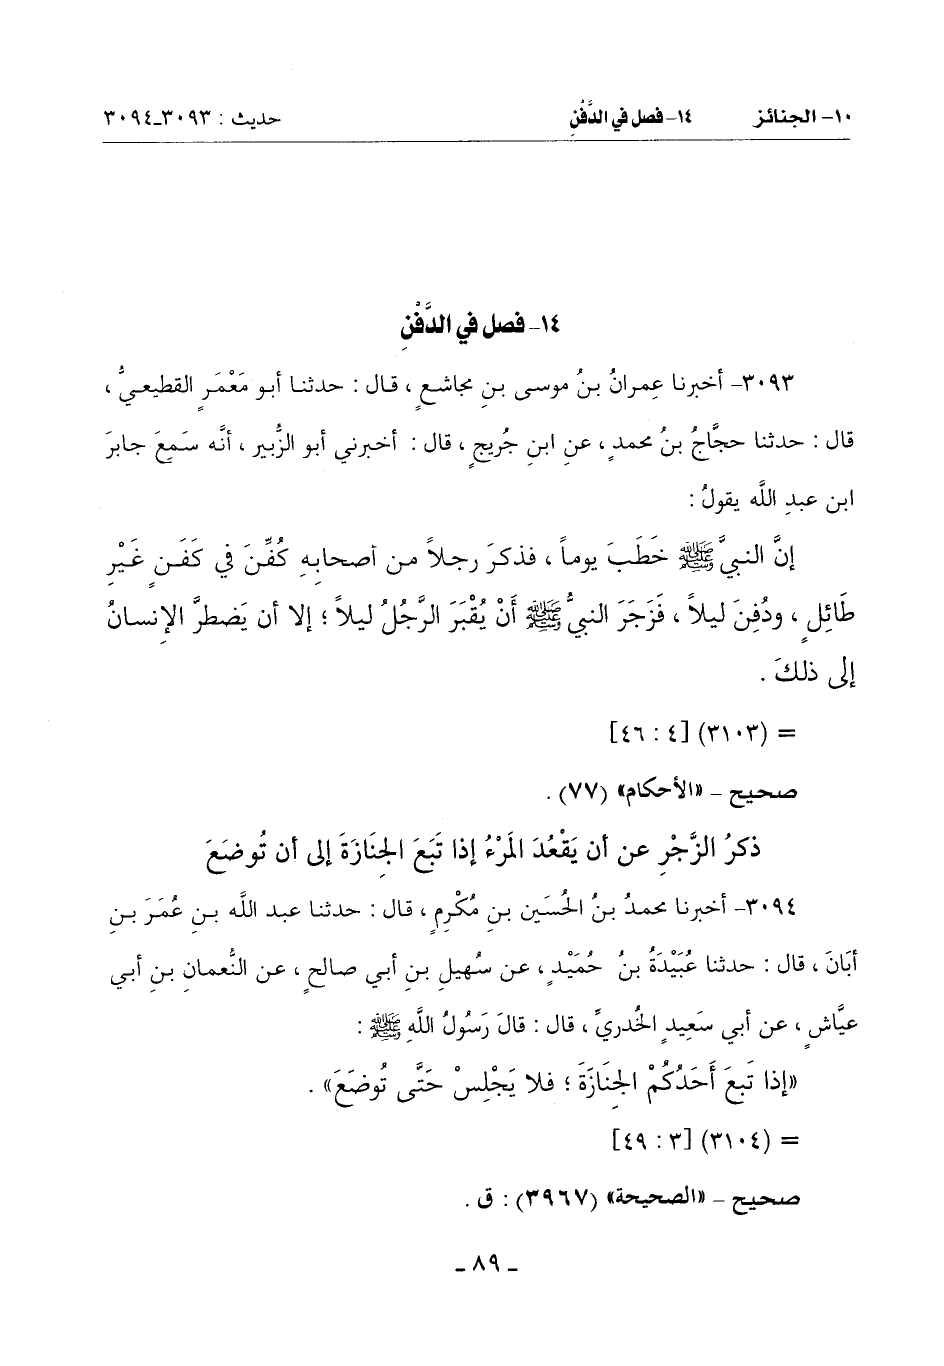 ١٠- الجنائز ١٤- فصل في الدَّفْنِ حديث : ٣٠٩٣-٣٠٩٤
١٤- فصل في الدَّفْنِ
٣٠٩٣- أخبرنا عِمرانُ بنُ موسى بنِ مجاشعٍ ، قال : حدثنا أبو مَعْمَرٍ القطيعيُّ ،
قال : حدثنا حجَّاجُ بنُ محمدٍ ، عنِ ابنِ جُريجٍ ، قال : أخبرني أبو الزُّبير ، أنَّه سَمعَ جابرَ
ابن عبدِ اللَّه يقولُ :
إنَّ النبيَّ ﷺ خَطَبَ يوماً ، فذكرَ رجلاً من أصحابِهِ كُفِّنَ في كَفَنٍ غَيْرِ
طَائِلٍ ، ودُفِنَ ليلاً ، فَزَجَرَ النبيُّ ﷺ أَنْ يُقْبَرَ الرَّجُلُ ليلاً ؛ إلا أن يَضطرَّ الإنسانُ
إلى ذلكَ .
= (٣١٠٣) [٤ : ٤٦]
صحيح - «الأحكام» (٧٧) .
ذكرُ الزَّجْرِ عن أن يَقْعُدَ المَرْءُ إذا تَبَعَ الجِنَازَةَ إلى أن تُوضَعَ
٣٠٩٤- أخبرنا محمدُ بنُ الحُسَين بنِ مُكْرِمٍ ، قال : حدثنا عبد اللَّه بنِ عُمَرَ بنِ
أبَانَ ، قال : حدثنا عُبَيْدَةُ بنُ حُمَيْدٍ ، عن سُهيلِ بنِ أبي صالحٍ ، عن النُّعمانِ بنِ أبي
عيَّاشٍ ، عن أبي سَعِيدٍ الخُدريِّ ، قال : قالَ رَسُولُ اللَّهِ ﷺ :
«إذا تَبعَ أَحَدُكُمْ الجِنَازَةَ ؛ فلا يَجْلِسْ حَتَّى تُوضَعَ» .
= (٣١٠٤) [٣ : ٤٩]
صحيح - «الصحيحة» (٣٩٦٧) : ق .
- ٨٩ -